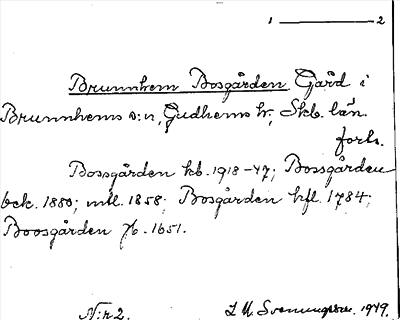 1 ——— 2
Brunnhem Bosgården Gård i
Brunnhems s:n, Gudhems hr, Skb. län.
forts.
Bossgården kb. 1918-47; Bossgården
eck. 1880; mtl. 1858; Bosgården hfl. 1784;
Boosgården Jb. 1651.
N:r 2. 1949.